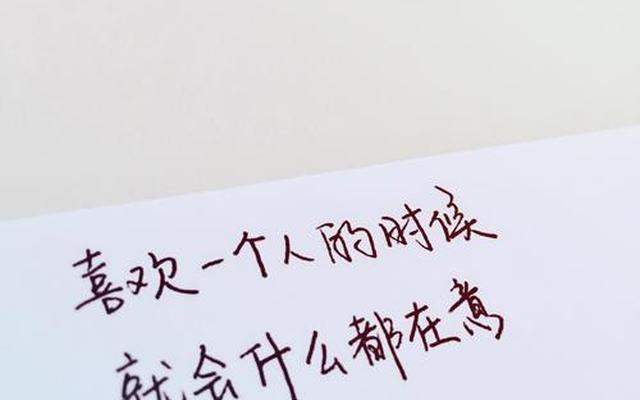 喜欢一个人的时候
就会什么都在意